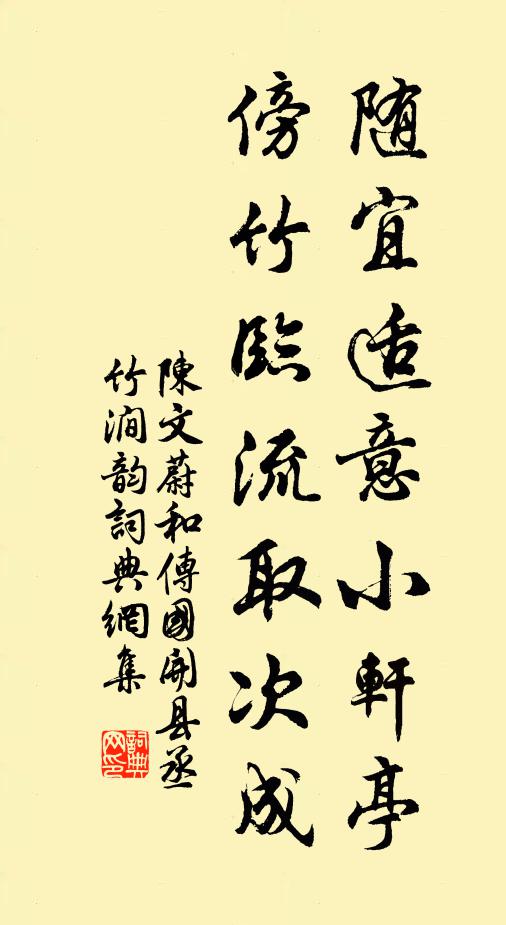 随宜适意小軒亭
傍竹臨流取次成
陳文蔚和傅國開县丞
竹澗韵詞典網集
詞典网印